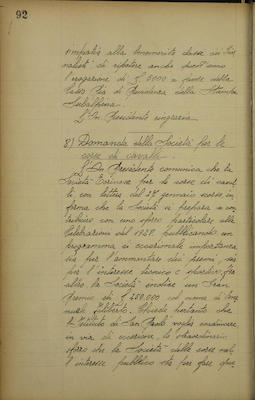 92
simpatia alla benemerita classe dei Gior
nalisti di ripetere anche quest'anno
l'erogazione di £ 5000 a favore della
Cassa Pia di Previdenza della Stampa
Subalpina.
L'On. Presidente ringrazia.
8) Domanda della Società per le
corse di cavalli.
L'On. Presidente comunica che la
Società Torinese per le corse di caval
li, con lettera del 28 gennaio scorso, in
forma che la Società si prepara a con
tribuire con uno sforzo particolare alle
Celebrazioni del 1928 pubblicando un
programma di eccezionale importanza
sia per l'ammontare dei premi, sia
per l'interesse tecnico e sportivo; fra
altro la Società indice un Gran
Premio di £ 250,000 col nome di Ema
nuele Filiberto. Chiede pertanto che
l'Istituto di San Paolo voglia esaminare
in via di eccezione, lo straordinario
sforzo che la Società delle corse nel
l'interesse pubblico sta per fare que